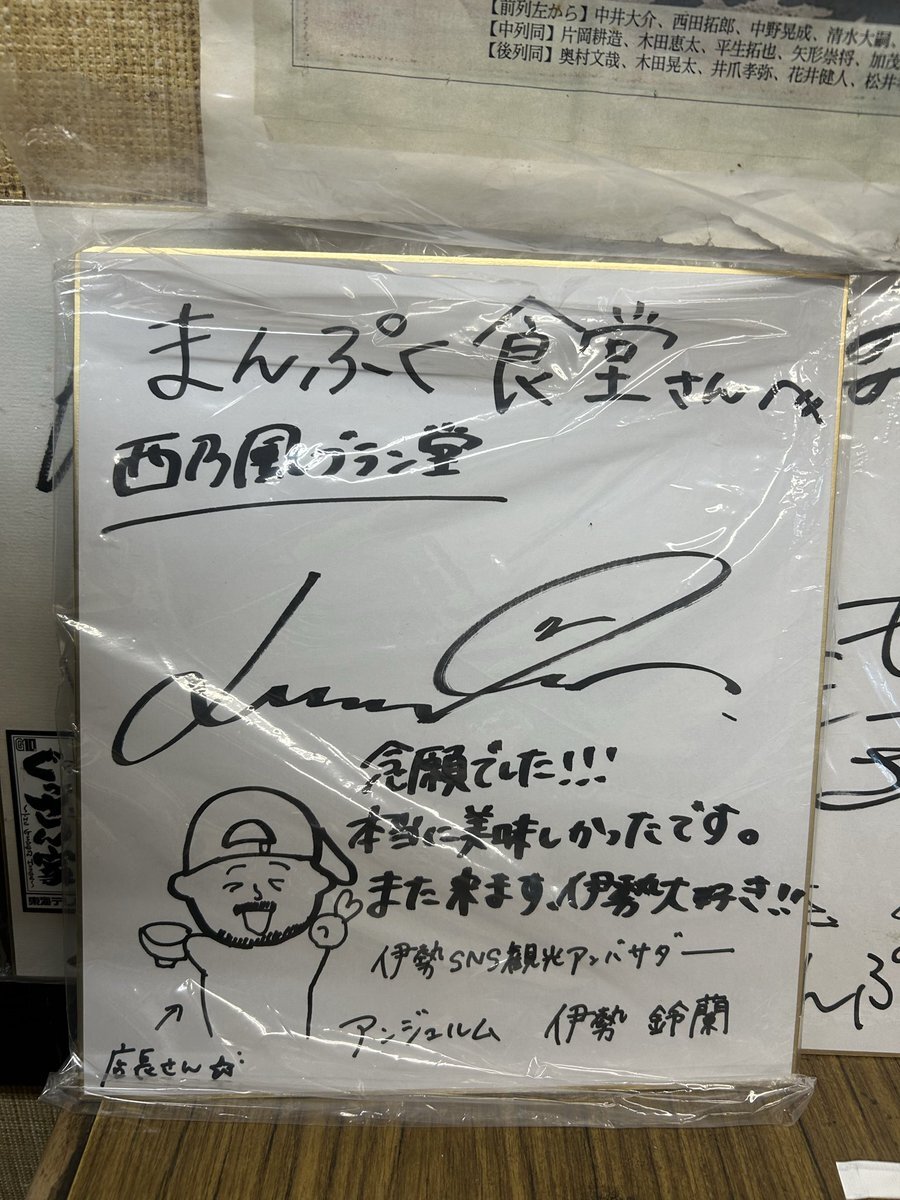 【前列左から】中井大介、西田拓郎、中野晃成、清水大嗣、
【中列同】片岡耕造、木田恵太、平生拓也、矢形崇将、加茂
【後列同】奥村文哉、木田晃太、井爪孝弥、花井健人、松井
まんぷく食堂さんへ
西乃風グラン堂
念願でした!!!
本当に美味しかったです。
また来ます、伊勢大好き!!
伊勢SNS観光アンバサダー
アンジュルム 伊勢 鈴蘭
店長さん
ぐっさん家
東海テ